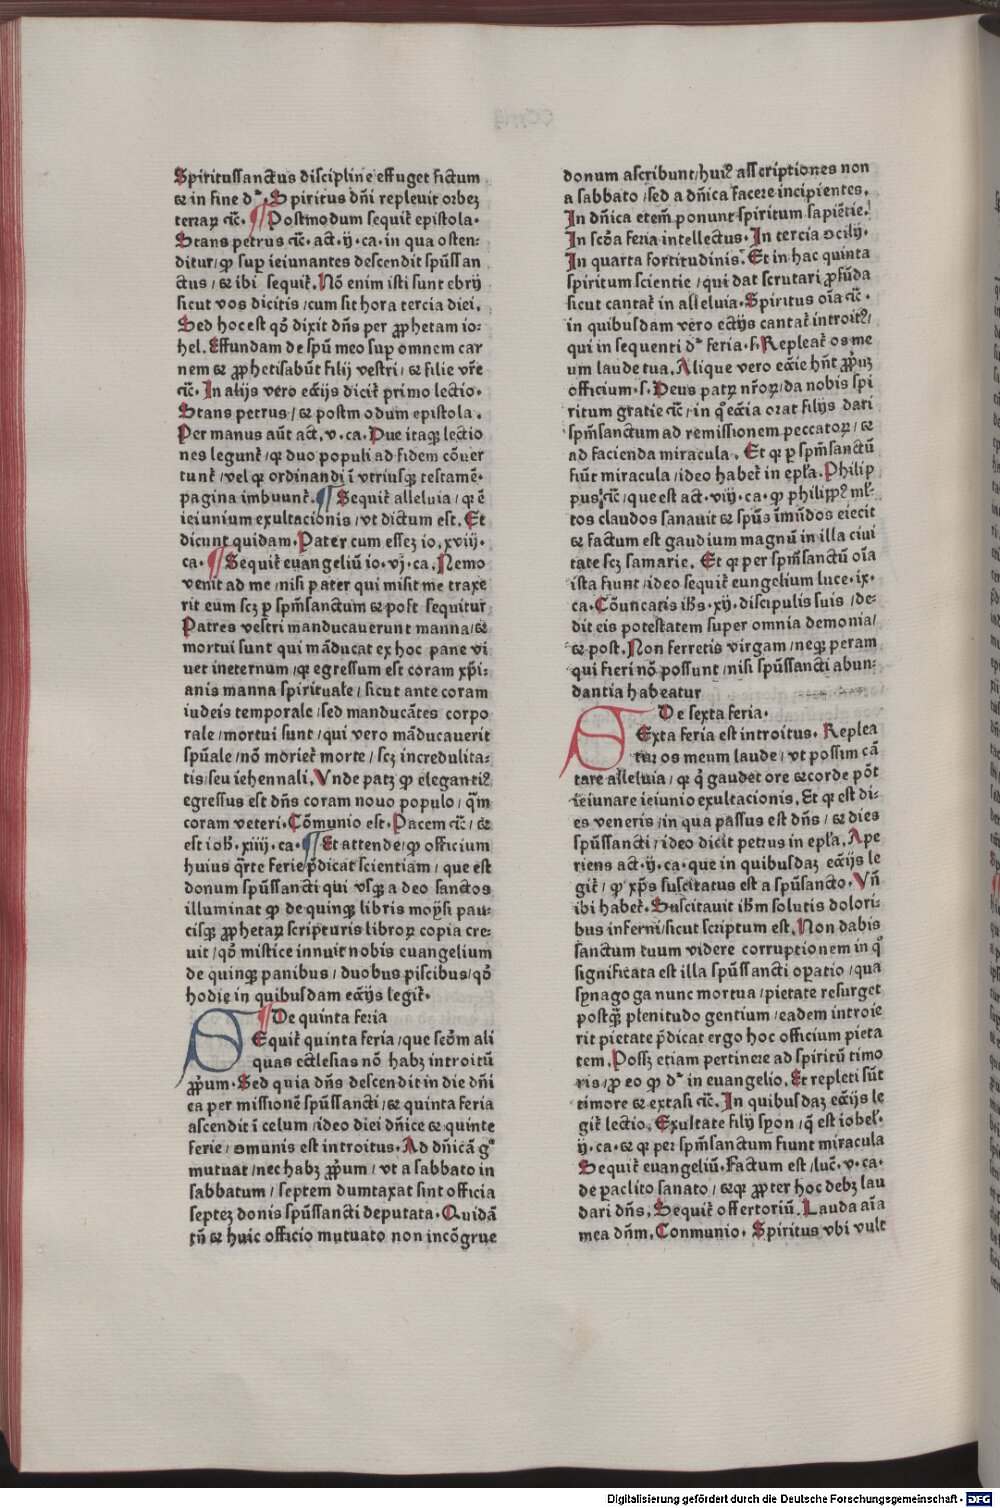 Spiritussanctus discipline effuget fictum
⁊ in fine dr̄. Spiritus dn̄i repleuit orbeꝫ
terraꝝ ⁊c̄. ¶ Postmodum sequit᷑ epistola.
Stans petrus ⁊c̄. act. ij. ca. in qua osten⸗
ditur/ ꝙ sup̄ ieiunantes descendit spūssan
ctus/ ⁊ ibi sequit᷑. Nō enim isti sunt ebrij
sicut vos dicitis/ cum sit hora tercia diei.
Sed hoc est qd̄ dixit dn̄s per ꝓphetam io⸗
hel. Effundam de spū meo sup̄ omnem car
nem ⁊ ꝓphetisabūt filij vestri/ ⁊ filie vr̄e
⁊c̄. In alijs vero ecc̄ijs dicit᷑ primo lectio.
Stans petrus/ ⁊ postmodum epistola.
Per manus aūt act. v. ca. Due itaqꝫ lectio
nes legunt᷑/ qꝛ duo populi ad fidem cōuer
tunt᷑/ vel qꝛ ordinandi ī vtriusqꝫ testamē.
pagina imbuunt᷑. ¶ Sequit᷑ alleluia/ qꝛ ē
ieiunium exultacionis/ vt dictum est. Et
dicunt quidam. Pater cum esseꝫ io. xviij.
ca. ¶ Sequit᷑ euangeliū io. vj. ca. Nemo
venit ad me/ nisi pater qui misit me traxe
rit eum scꝫ p spm̄sanctum ⁊ post sequitur
Patres vestri manducauerunt manna/ ⁊
mortui sunt qui māducat ex hoc pane vi
uet ineternum/ qꝛ egressum est coram xp̄i⸗
anis manna spirituale/ sicut ante coram
iudeis temporale/ sed manducātes corpo
rale/ mortui sunt/ qui vero māducauerit
spūale/ nō moriet᷑ morte/ scꝫ incredulita⸗
tis/ seu iehennali. Vnde patꝫ ꝙ eleganti⁹
egressus est dn̄s coram nouo populo/ qm̄
coram veteri. Cōmunio est. Pacem ⁊c̄/ ⁊
est ioh̄. xiiij. ca. ¶ Et attende/ ꝙ officium
huius qr̄te ferie p̄dicat scientiam/ que est
donum spūssancti qui vsqꝫ adeo sanctos
illuminat ꝙ de quinqꝫ libris moysi pau⸗
cisqꝫ ꝓphetaꝝ scripturis libroꝝ copia cre⸗
uit/ qd̄ mistice innuit nobis euangelium
de quinqꝫ panibus/ duobus piscibus/ qd̄
hodie in quibusdam ecc̄ijs legit᷑.
¶ De quinta feria
Sequit᷑ quinta feria/ que scd̄m ali
quas ecclesias nō habꝫ introitū
ꝓpium. Sed quia dn̄s descendit in die dn̄i
ca per missionē spūssancti/ ⁊ quinta feria
ascendit ī celum/ ideo diei dn̄ice ⁊ quinte
ferie/ ꝯmunis est introitus. Ad dn̄icā gͦ
mutuat/ nec habꝫ ꝓpium/ vt a sabbato in
sabbatum/ septem dumtaxat sint officia
septeꝫ donis spūssancti deputata. Quidā
tn̄ ⁊ huic officio mutuato non incōgrue
donum ascribunt/ hui⁹ asscriptiones non
a sabbato/ sed a dn̄ica facere incipientes.
In dn̄ica etem̄ ponunt spiritum sapiētie.
In scd̄a feria intellectus. In tercia ꝯcilij.
In quarta fortitudinis. Et in hac quinta
spiritum scientie/ qui dat scrutari ꝓfūda
sicut cantat᷑ in alleluia. Spiritus oīa ⁊c̄.
in quibusdam vero ecc̄ijs cantat᷑ introit⁹/
qui in sequenti dr̄ feria. s. Repleat᷑ os me
um laude tua. Alique vero ecc̄ie hn̄t ꝓpuꝫ
officium. s. Deus patꝝ nr̄oꝝ/ da nobis spi
ritum gratie ⁊c̄/ in qͣ ecc̄ia orat filijs dari
spm̄sanctum ad remissionem peccatoꝝ/ ⁊
ad facienda miracula. Et qꝛ p spm̄sanctū
fiūt miracula/ ideo habet᷑ in epl̄a. Philip
pus ⁊c̄/ que est act. viij. ca. ꝙ philipp⁹ ml̄⸗
tos claudos sanauit ⁊ spūs īmūdos eiecit
⁊ factum est gaudium magnū in illa ciui
tate scꝫ samarie. Et qꝛ per spm̄sanctū oīa
ista fiunt/ ideo sequit᷑ eungelium luce. ix.
ca. Cōuocatis ih̄s. xij. discipulis suis/ de⸗
dit eis potestatem super omnia demonia/
⁊ post. Non ferretis virgam/ neqꝫ peram
qui fieri nō possunt/ nisi spūssancti abun⸗
dantia habeatur
De sexta feria.
Sexta feria est introitus. Replea
tur os meum laude/ vt possim cā
tare alleluia/ qꝛ q̄ gaudet ore ⁊ corde pōt
ieiunare ieiunio exultacionis. Et qꝛ est di⸗
es veneris/ in qua passus est dn̄s/ ⁊ dies
spūssancti/ ideo dicit petrus in epl̄a. Ape
riens act. ij. ca. que in quibusdaꝫ ecc̄ijs le
git᷑/ ꝙ xp̄s suscitatus est a spūsancto. Vn̄
ibi habet᷑. Suscitauit ih̄m solutis dolori⸗
bus inferni/ sicut scriptum est. Non dabis
sanctum tuum videre corruptionem in qͦ
significata est illa spūssancti oꝑatio/ qua
synagoga nunc mortua/ pietate resurget
postqꝫ̄ plenitudo gentium/ eadem introie
rit pietate p̄dicat ergo hoc officium pieta
tem. Possꝫ etiam pertinere ad spiritū timo
ris/ ꝓ eo ꝙ dr̄ in euangelio. Et repleti sūt
timore ⁊ extasi ⁊c̄. In quibusdaꝫ ecc̄ijs le
git᷑ lectio. Exultate filij syon/ q̄ est iohel̄.
ij. ca. ⁊ qꝛ per spm̄sanctum fiunt miracula
Sequit᷑ euangeliū. Factum est/ luc̄. v. ca.
de paclito sanato/ ⁊ qꝛ ꝓpter hoc debꝫ lau
dari dn̄s. Sequit᷑ offertoriū. Lauda aīa
mea dn̄m. Conmunio. Spiritus vbi vult
Digitalisierung gefördert durch die Deutsche Forschungsgemeinschaft - DFG